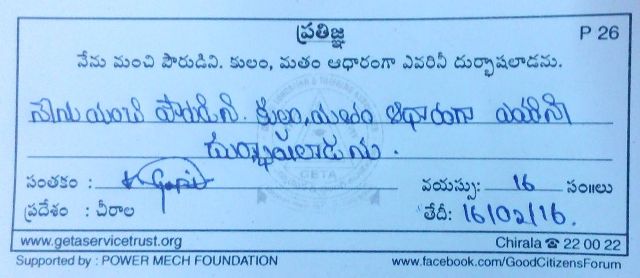 ప్రతిజ్ఞ
P 26
నేను మంచి పౌరుడిని. కులం, మతం ఆధారంగా ఎవరినీ దుర్భాషలాడను.
నేను మంచి పౌరుడిని. కులం, మతం ఆధారంగా ఎవరినీ
దుర్భాషలాడను.
GETA
సంతకం :
వయస్సు: 16 సం॥లు
ప్రదేశం : చీరాల
తేదీ: 16/02/16.
www.getaservicetrust.org
Chirala ☎ 22 00 22
Supported by : POWER MECH FOUNDATION
www.facebook.com/GoodCitizensForum